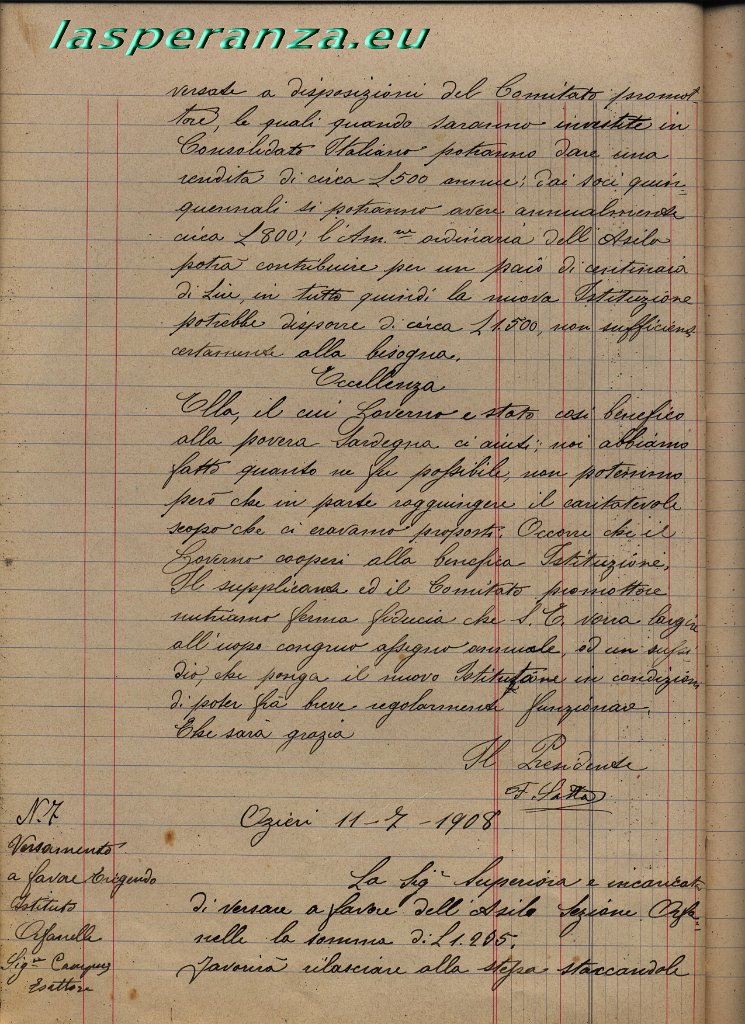 lasperanza.eu
versate a disposizioni del Comitato promot-
tore, le quali quando saranno investite in
Consolidato Italiano potranno dare una
rendita di circa £500 annue; dai soci quin-
quennali si potranno avere annualmente
circa £800; l'Am.ne ordinaria dell'Asilo
potrà contribuire per un paio di centinaia
di Lire, in tutto quindi la nuova Istituzione
potrebbe disporre di circa £1.500, non sufficiente
certamente alla bisogna.
Eccellenza
Ella, il cui Governo è stato così benefico
alla povera Sardegna ci aiuti; noi abbiamo
fatto quanto ne fu possibile, non potemmo
però che in parte raggiungere il caritatevole
scopo che ci eravamo proposti. Occorre che il
Governo cooperi alla benefica Istituzione.
Il supplicante ed il Comitato promottore
nutriamo ferma fiducia che S. E. vorrà largire
all'uopo congruo assegno annuale, ed un sussi
dio, che ponga il nuovo in condizioni
di poter frà breve regolarmente funzionare.
Che sarà grazia
Il Presidente
F. Satta
N. 7
Ozieri 11-7-1908
Versamento
a favore Erigendo
Istituto
Orfanelle
Sig.re Campus
Esattore
La Sig.a Superiora è incaricata
di versare a favore dell'Asilo Sezione Orfa-
nelle la somma di £1.205.
Favorirà rilasciare alla stessa staccandole